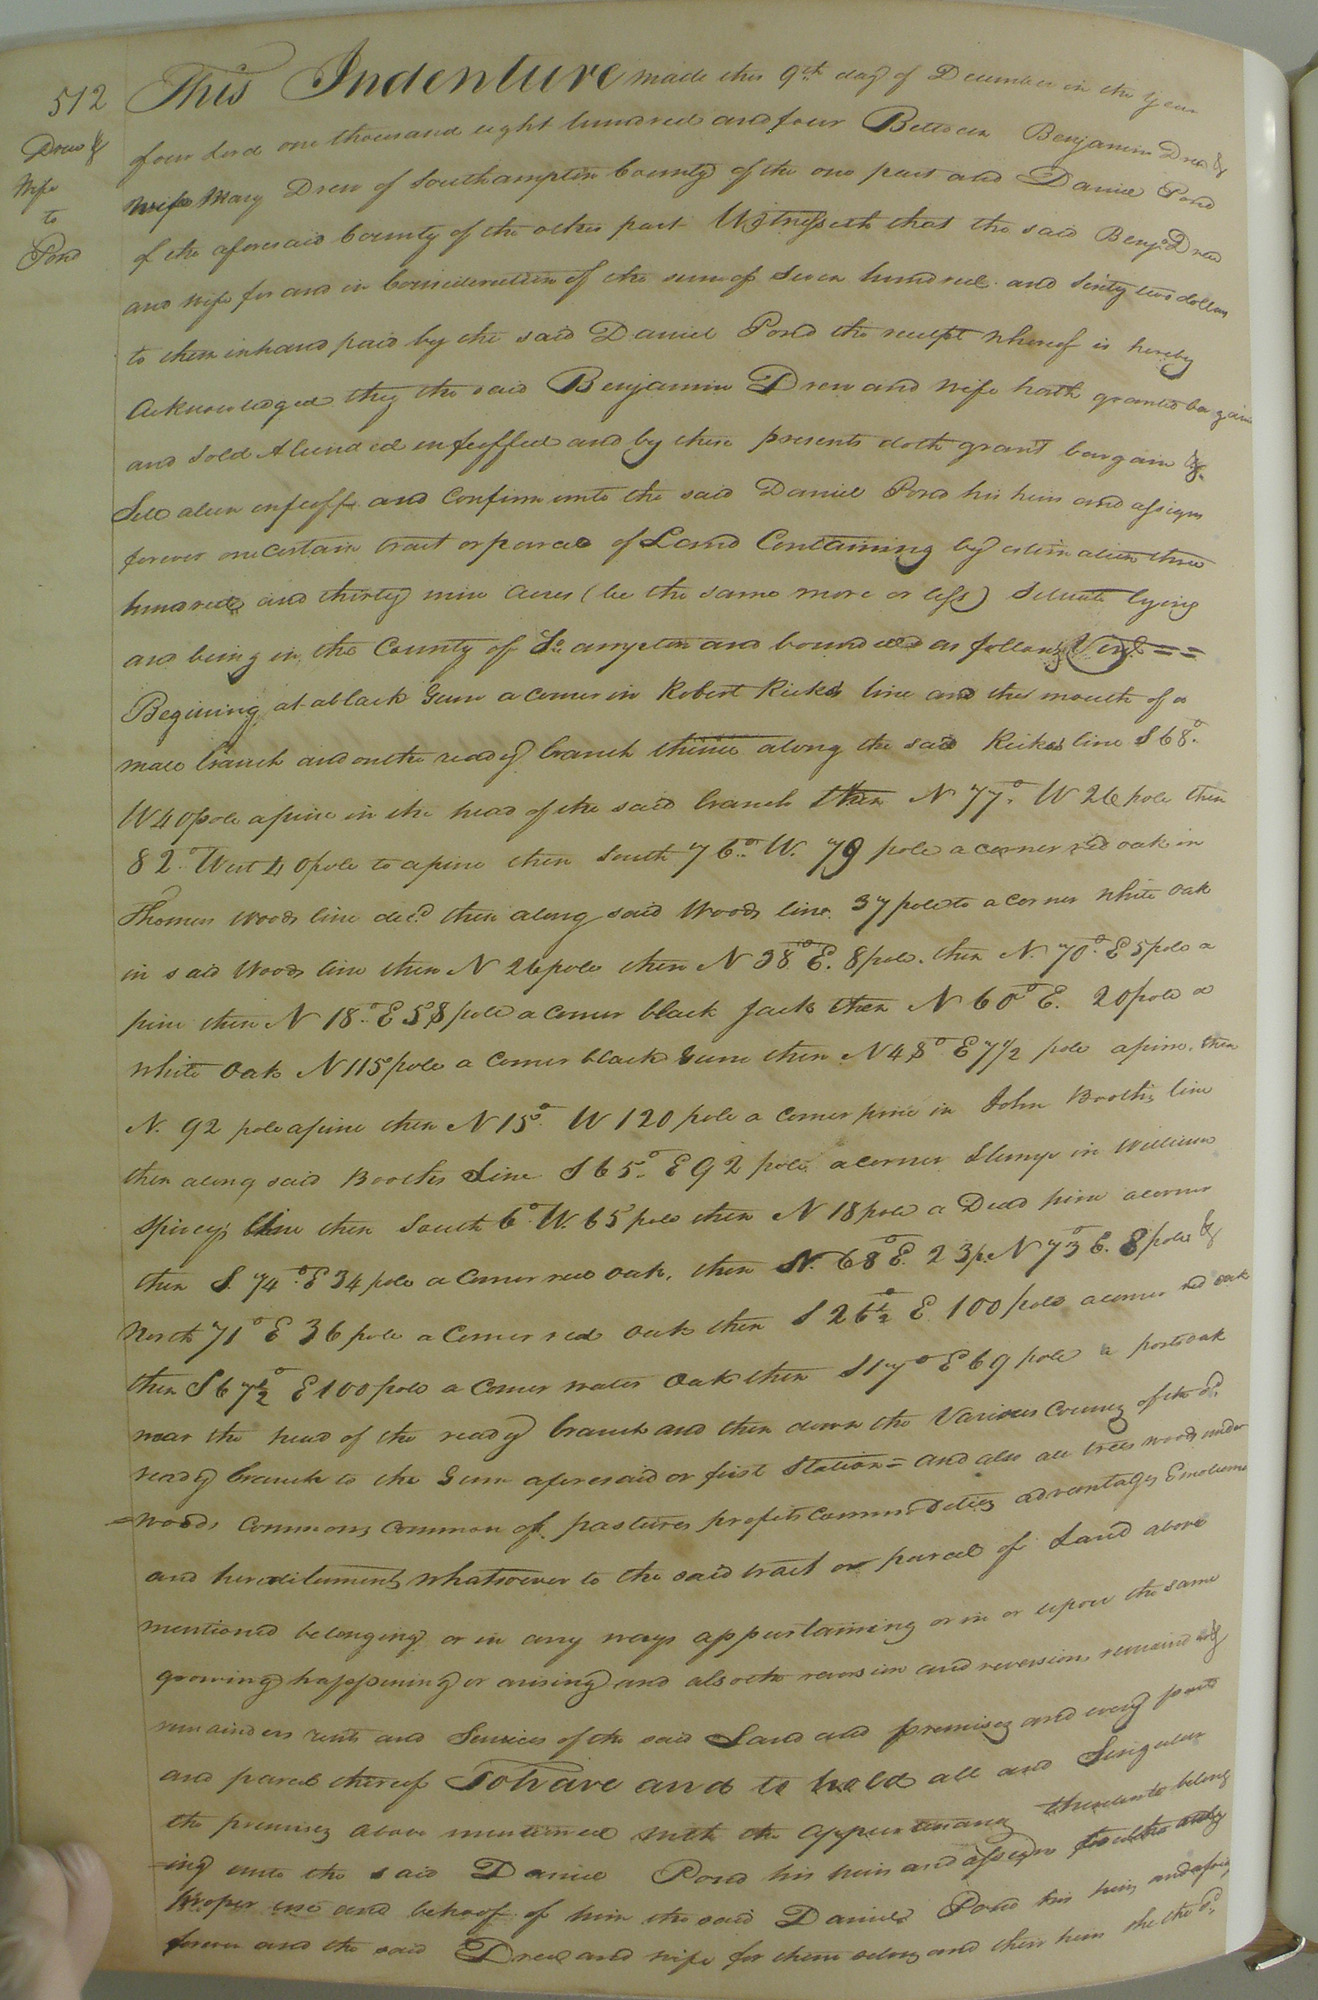 512
Drew &
Wife
to
Pond
This Indenture made this 9th day of December in the year
of our Lord one thousand eight hundred and four Between Benjamin Drew &
wife Mary Drew of Southampton County of the one part and Daniel Pond
of the aforesaid County of the other part Witnesseth that the said Benja Drew
and wife for and in Consideration of the sum of Seven hundred and Sixty two dollars
to them in hand paid by the said Daniel Pond the receipt whereof is hereby
Acknowledged they the said Benjamin Drew and wife hath granted bargain
and Sold Aliened enfeoffed and by these presents doth grant bargain &
Sell alien enfeoff and Confirm unto the said Daniel Pond his heirs and assigns
forever one Certain tract or parcel of Land Containing by estimation three
hundred and thirty nine Acres (be the same more or less) Situate lying
and being in the County of So ampton and bounded as follows Vizt = =
Begining at a black Gum a corner in Robert Ricks's line and the mouth of a
male branch and on the ready branch thence along the said Ricks line S 68°
W 40 pole a pine in the head of the said branch then N 77° W 26 pole then
82° West 40 pole to a pine then South 76° W. 79 pole a corner red oak in
Thomas Woods line decd then along said Woods line 37 pole to a corner white oak
in said Woods line then N 26 pole then N 38° E. 8 pole then N. 70° E 5 pole a
pine then N 18° E 58 pole a corner black Jack then N 60° E. 20 pole a
white Oak N 115 pole a corner black Gum then N 48° E 7 1/2 pole a pine then
N. 92 pole a pine then N 15° W 120 pole a corner pine in John Booths line
then along said Booths Line S 65° E 92 pole a corner Stump in William
Spiveys line then South 6° W. 65 pole then N 18 pole a Dead pine a corner
then S. 74° E 34 pole a corner red oak, then N. 68° E. 23 p. N 73 E. 8 pole &
North 71° E 36 pole a corner red oak then S 26 1/2° E 100 pole a corner red oak
then S 67 1/2° E 100 pole a corner water Oak then S 17° E 69 pole a post oak
near the head of the ready branch and then down the Various Courses of the sd
ready branch to the Gum aforesaid or first Station = and also all trees woods under
=woods Commons Common of pastures profits Commodities advantages Emoluments
and herditaments whatsoever to the said tract or parcel of Land above
mentioned belonging or in any ways appurtaining or in or upon the same
growing happening or arising and also the reversion and reversions remainder &
remainders rents and Services of the said Land and premises and every part
and parcel thereof To have and to hold all and Singular
the premises above mentioned with the appurtenances thereunto belong
ing unto the said Daniel Pond his heirs and assigns to the only
proper use and behoof of him the said Daniel Pond his heirs and assigns
forever and the said Drew and wife for them selves and their heirs the the sd